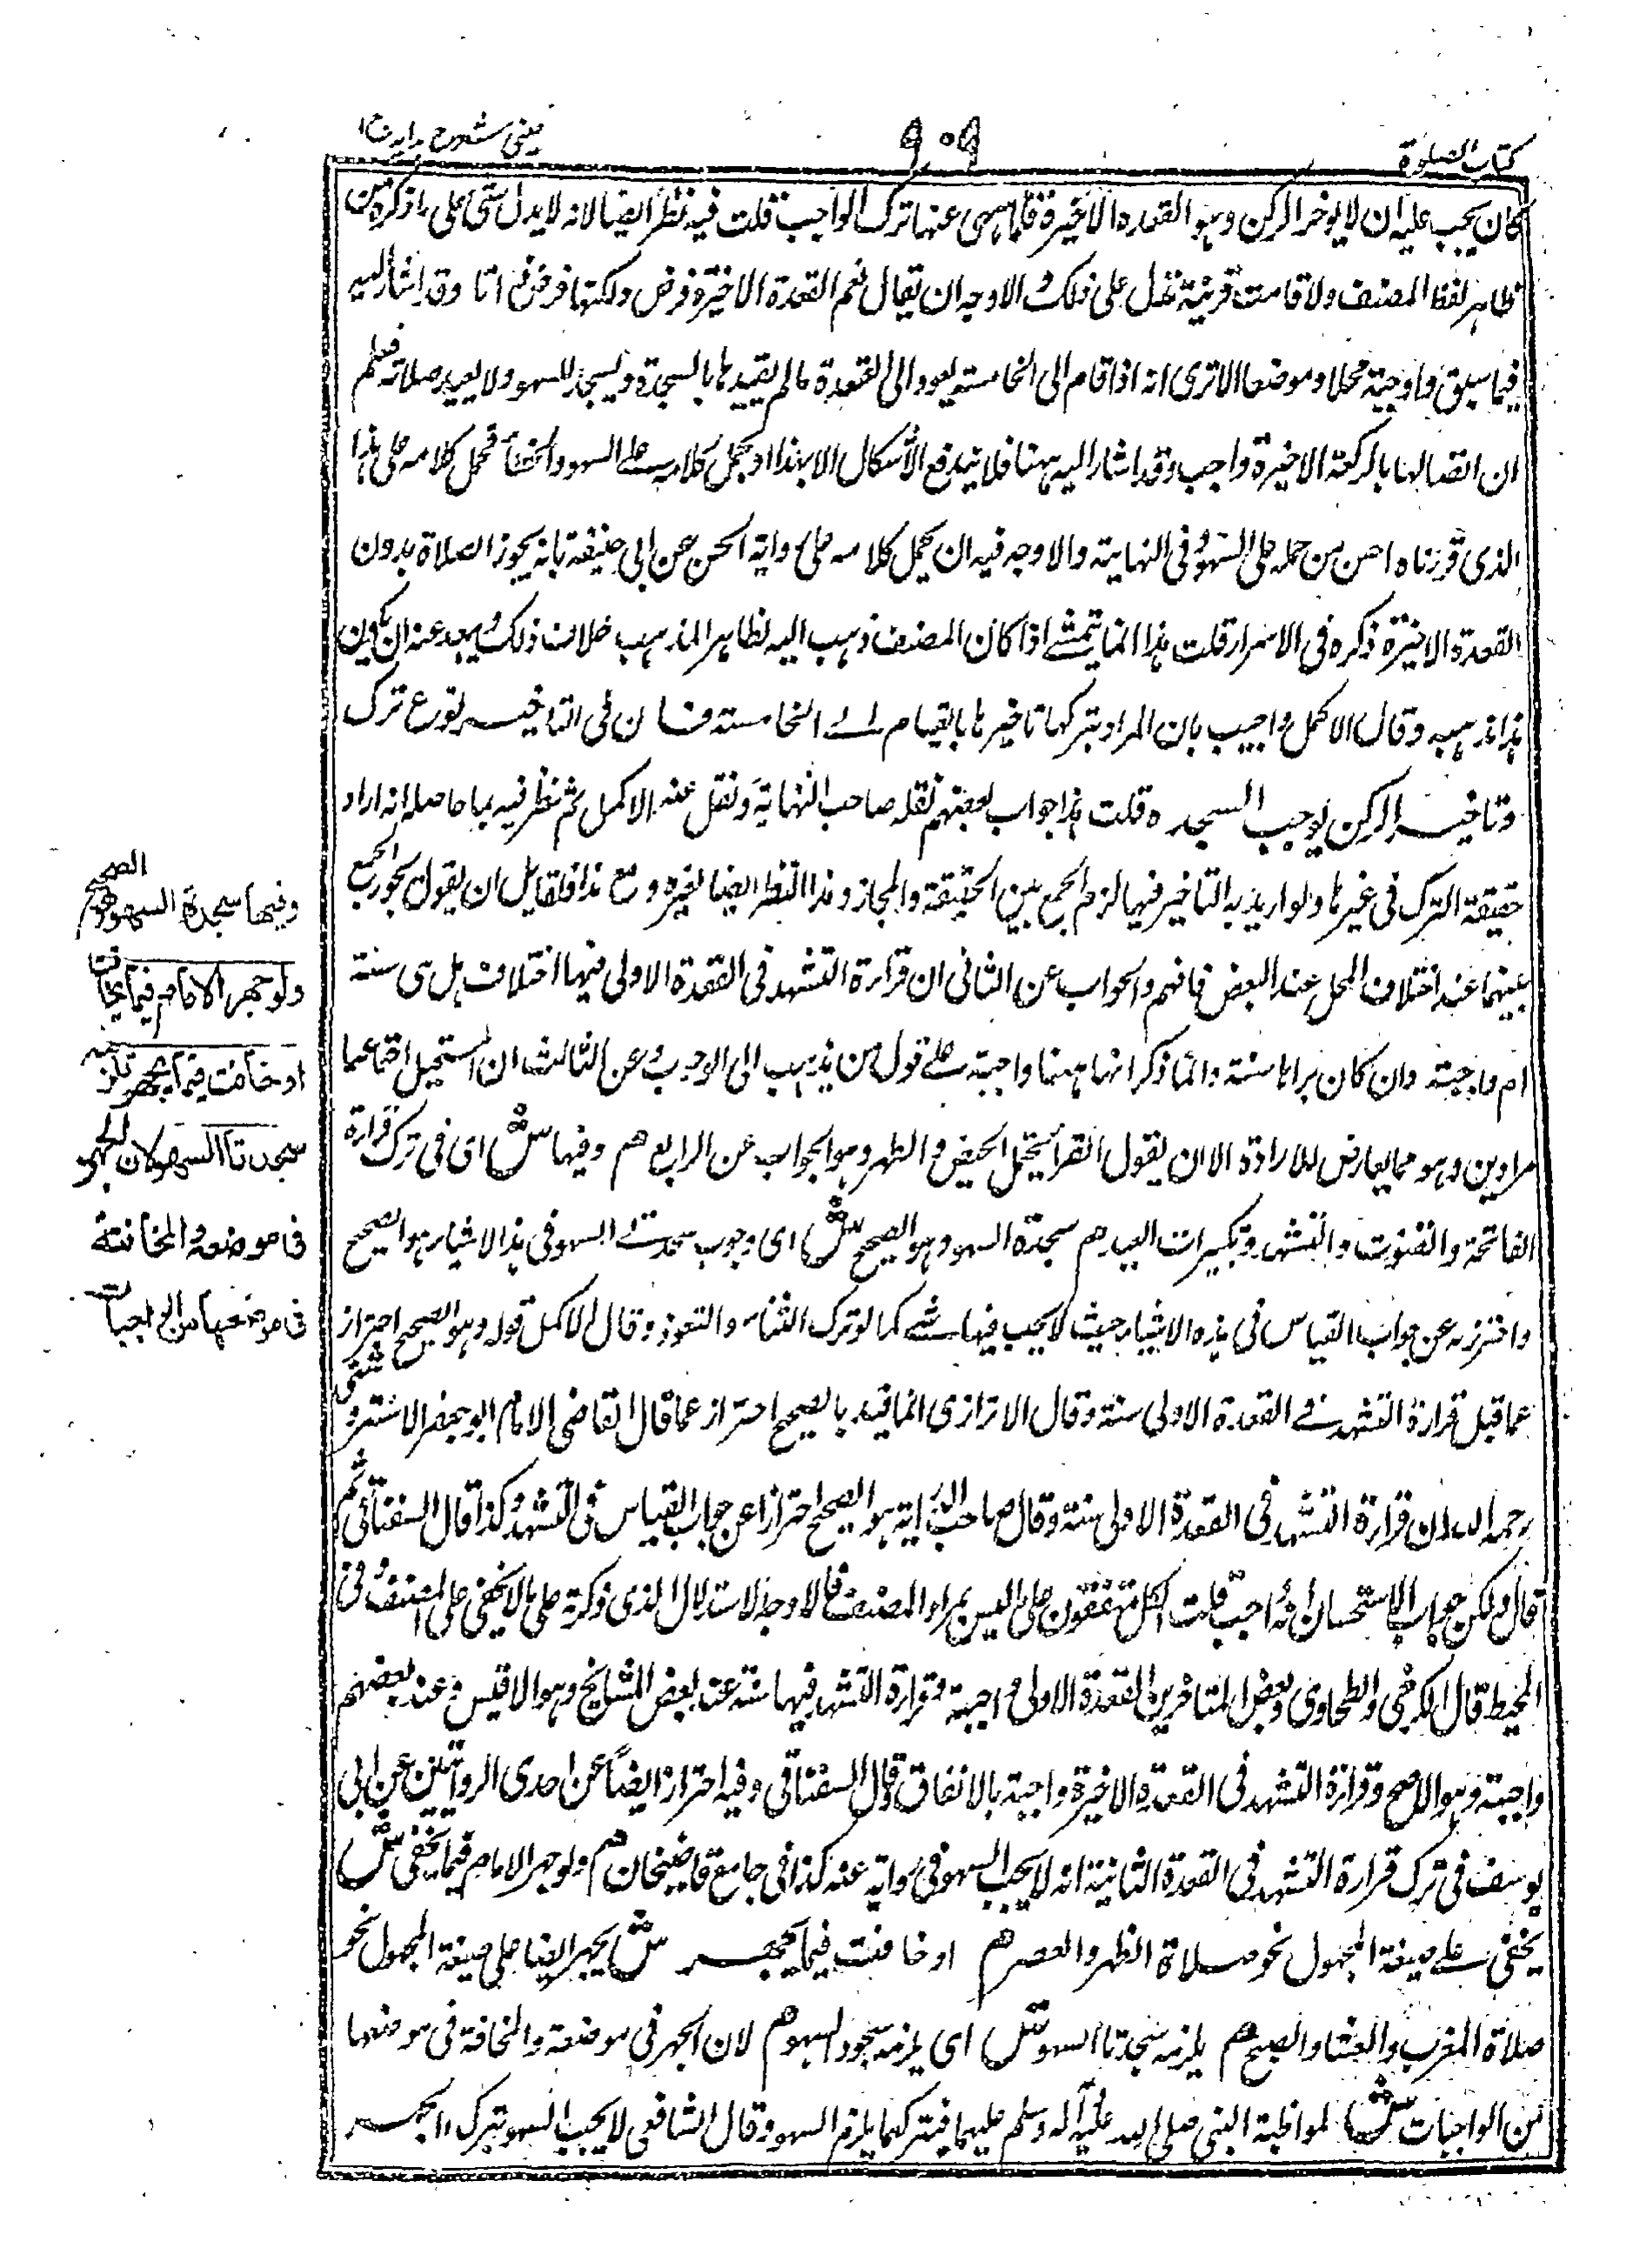 كتاب الصلوة
۹۰۹
عينى شرح هدايه ج ا
كان يجب عليه ان لا يوخر الركن وهو القعدة الاخيرة فلما سهى عنها ترك الواجب قلت فيه نظر ايضا لانه لا يدل شى على ما ذكره من
ظاهر لفظ المصنف ولا قامت قرينة تدل على ذلك الاوجه ان يقال نعم القعدة الاخيرة فرض ولكنها فرض وقد اشار اليه
فيما سبق واوجبته محلا وموضعا الا ترى انه اذا قام الى الخامسة يعود الى القعدة مالم يقيدها بالسجدة ويسجد للسهو ولا يعيد صلاته فعلم
ان اتصالها بالركعة الاخيرة واجب وقد اشار اليه ههنا فلا يندفع الاشكال الا بهذا او يحمل كلامه على السهو والخطأ فحمل كلامه على هذا
الذى قررناه احسن من حمله على السهو فى النهاية والاوجه فيه ان يحمل كلامه على رواية الحسن عن ابى حنيفة بانه يجوز الصلاة بدون
القعدة الاخيرة ذكره فى الاسرار قلت هذا انما يتمشى اذا كان المصنف ذهب اليه فظاهر المذهب خلاف ذلك ويبعد عنه ان يكون
هذا مذهبه وقال الاكمل واجيب بان المراد بتركها تاخيرها بالقيام الى الخامسة فان فى التاخير نوع ترك
وتاخير الركن يوجب السجدة قلت هذا جواب بعضهم نقله صاحب النهاية ونقل عنه الاكمل ثم نظر فيه بما حاصله انه اراد
حقيقة الترك فى غيرها ولو اريد به التاخير فيها لزم الجمع بين الحقيقة والمجاز وهذا النظر ايضا لغيره ومع هذا فلقايل ان يقول يجوز الجمع
بينهما عند اختلاف المحل عند البعض فافهم والجواب عن الثانى ان قراءة التشهد فى القعدة الاولى فيها اختلاف هل هى سنة
ام واجبة وان كان يراها سنة وانما ذكر انها ههنا واجبة على قول من يذهب الى الوجوب وعن الثالث ان المستحيل اجتماعهما
مرادين وهو مما يعارض للارادة الا ان يقول القرأ يحتمل الحيض والطهر وهو الجواب عن الرابع هم وفيها ش اى فى ترك قراءة
الفاتحة والقنوت والتشهد وتكبيرات العيد هم سجدة السهو وهو الصحيح ش اى وجوب سجدتى السهو فى هذه الاشياء هو الصحيح
واحترز به عن جواب القياس فى هذه الاشياء حيث لا يجب فيها شى كما لو ترك الثناء والتعوذ وقال الاكمل قوله وهو الصحيح احتراز
عما قيل قراءة التشهد فى القعدة الاولى سنة وقال الاترازى انما قيد بالصحيح احتراز عما قال القاضى الامام ابو جعفر الاستروشنى
رحمه الله ان قراءة التشهد فى القعدة الاولى سنة وقال صاحب الدراية هو الصحيح احترازا عن جواب القياس فى التشهد وكذا قال السغناقى ثم
قال ولكن جواب الاستحسان انه واجب قلت الكل متفقون على ما ليس بمراد المصنف فالاوجه الاستدلال الذى ذكرته على ما لا يخفى على المصنف وفى
المحيط قال الكرخى والطحاوى وبعض المتاخرين القعدة الاولى واجبة وقراءة التشهد فيها سنة عند بعض المشايخ وهو الاقيس وعند بعضهم
واجبة وهو الاصح وقراءة التشهد فى القعدة الاخيرة واجبة بالاتفاق قال السغناقى وفيه احتراز ايضاً عن احدى الروايتين عن ابى
يوسف فى ترك قراءة التشهد فى القعدة الثانية انه لا يجب السهو فى رواية عنه كذا فى جامع قاضيخان هم ولو جهر الامام فيما يخفى ش
يخفى على صيغة المجهول نحو صلاة الظهر والعصر هم او خافت فيما يجهر ش يجهر ايضا على صيغة المجهول نحو
صلاة المغرب والعشا والصبح هم يلزمه سجدتا السهو ش اى يلزمه سجود السهو هم لان الجهر فى موضعه والمخافتة فى موضعها
من الواجبات ش لمواظبة النبى صلى الله عليه وآله وسلم عليهما فبتركهما يلزم السهو وقال الشافعى لا يجب السهو بترك الجهر
وفيها سجدة السهو هو الصحيح
ولو جهر الامام فيما يخافت
او خافت فيما يجهر تلزمه
سجدتا السهو لان الجهر
فى موضعه والمخافتة
فى موضعها من الواجبات